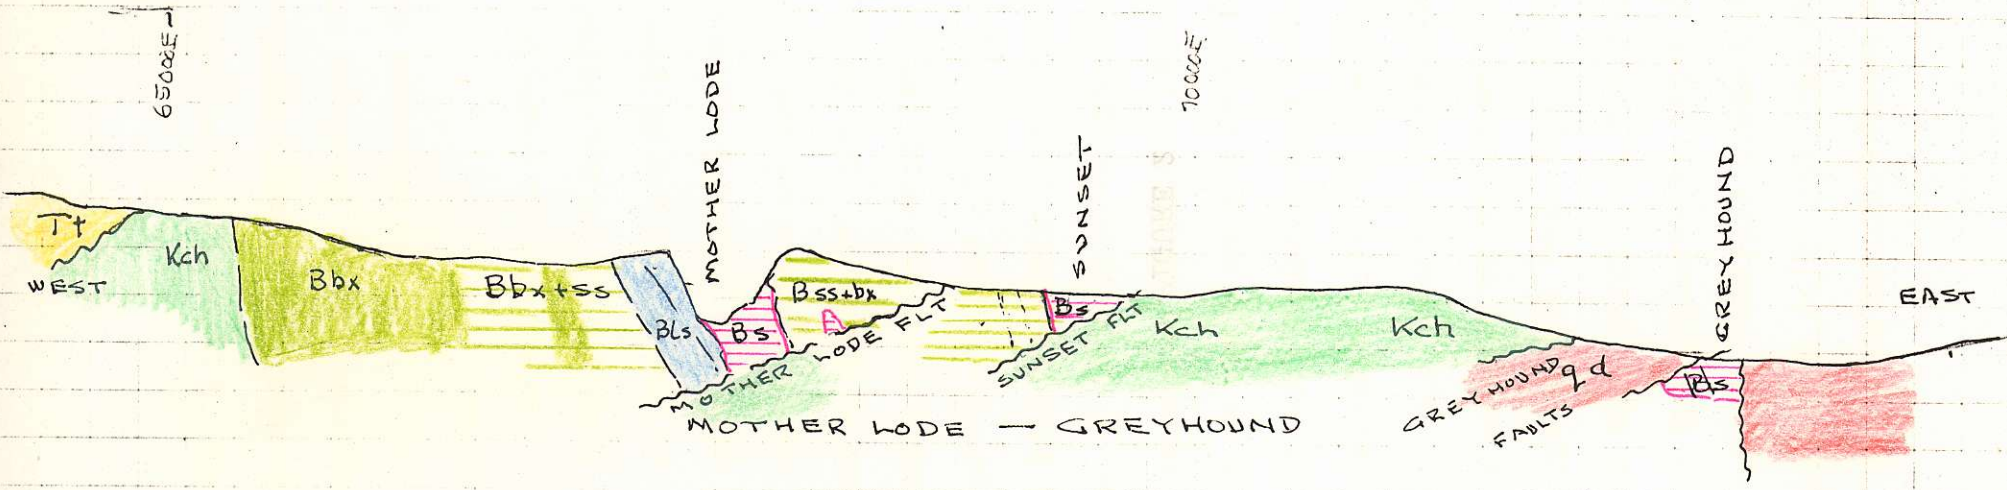 65000E
70000E
MOTHER LODE
SUNSET
GREYHOUND
Tt
WEST
Kch
Bbx
Bbx+ss
Bls
Bs
Bss+bx
MOTHER LODE FLT
Bs
SUNSET FLT
Kch
Kch
GREYHOUND
FAULTS
qd
Bs
EAST
MOTHER LODE — GREYHOUND